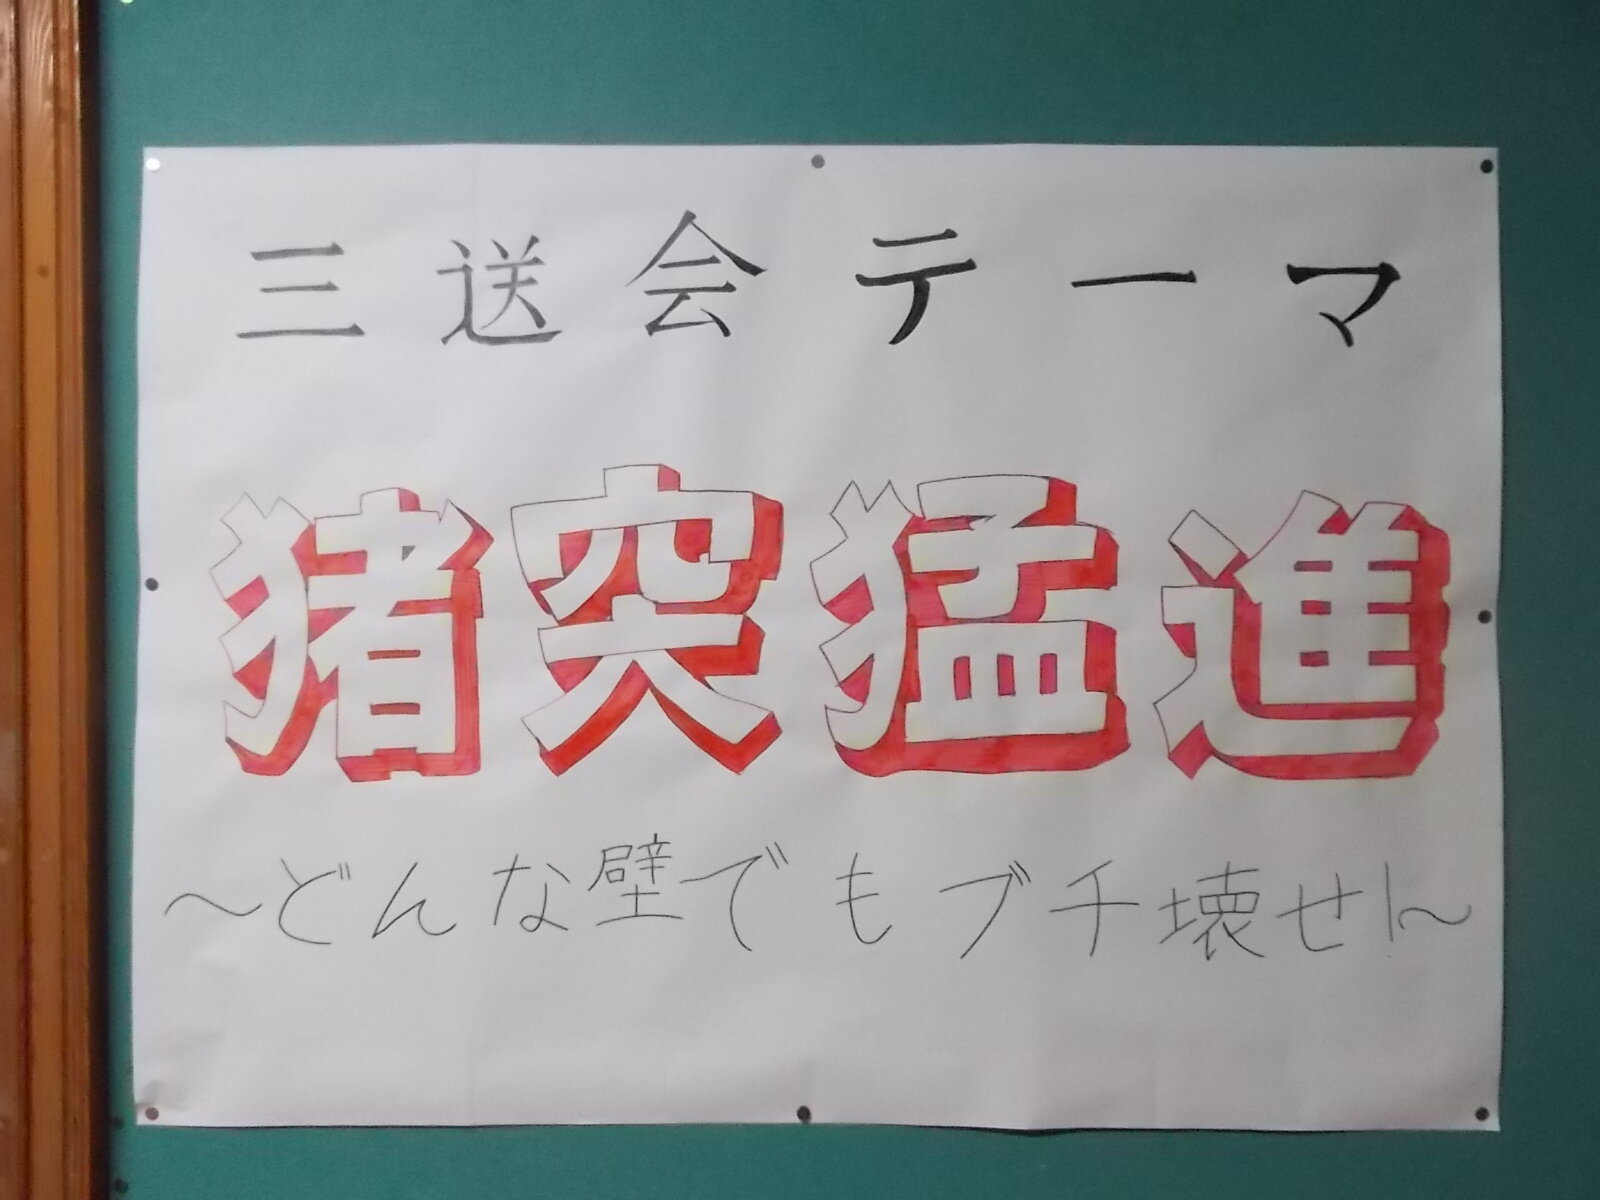 三送会テーマ
猪突猛進
～どんな壁でもブチ壊せ!～